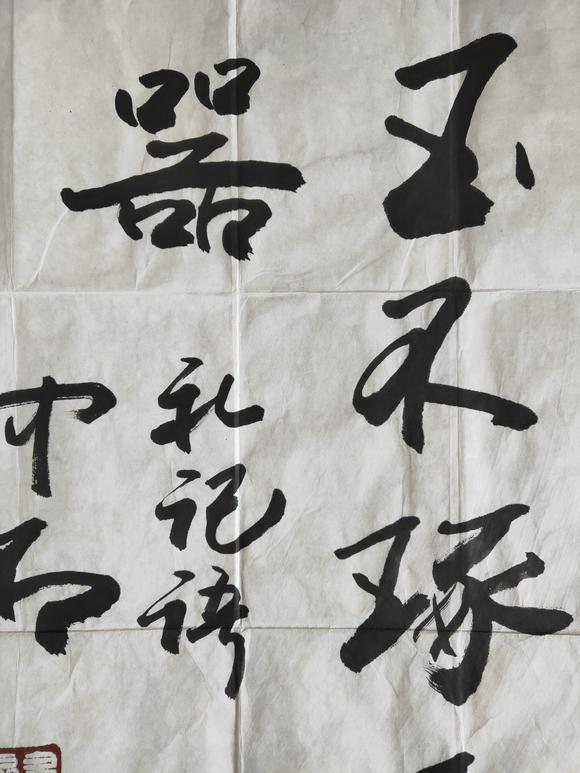 玉不琢
器
礼记语
中石